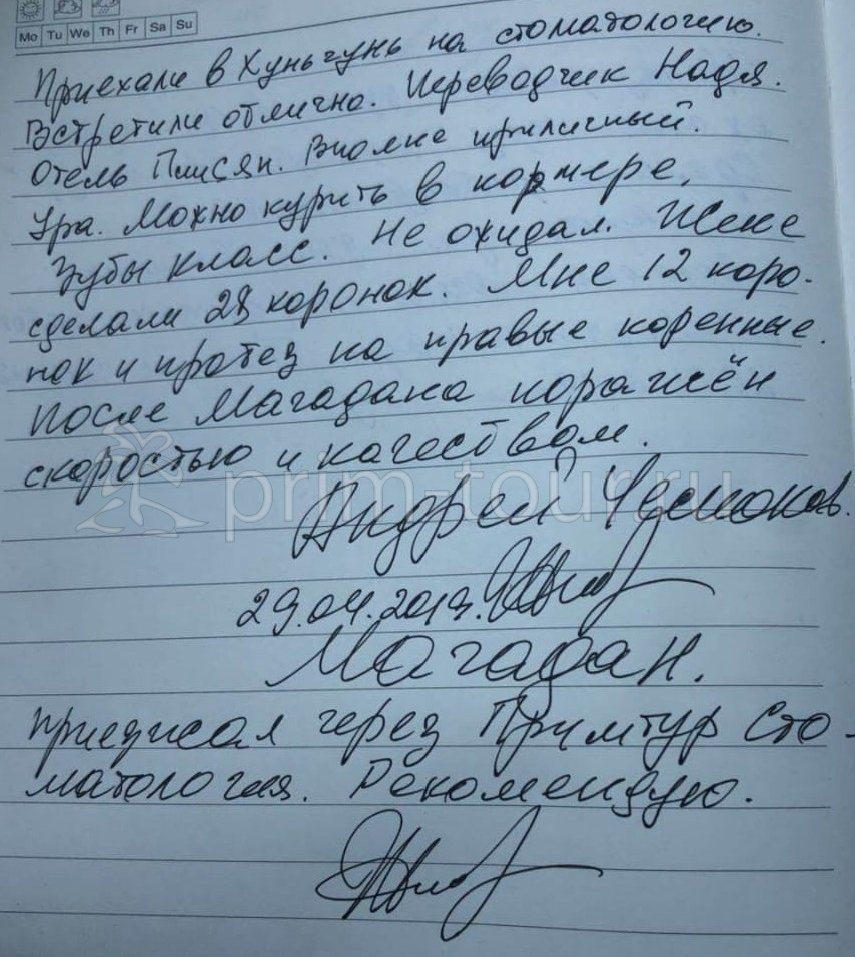 Mo Tu We Th Fr Sa Su
Приехали в Хуньчунь на стоматологию.
Встретили отлично. Переводчик Надя.
Отель Пинсян. Вполне приличный.
Ура. Можно курить в номере.
Зубы класс. Не ожидал. Жене
сделали 28 коронок. Мне 12 коро-
нок и протез на правые коренные.
После Магадана поражён
скоростью и качеством.
prim-tour.ru
Андрей
29.04.2019.
Магадан.
приезжал через Примтур Сто-
матология. Рекомендую.